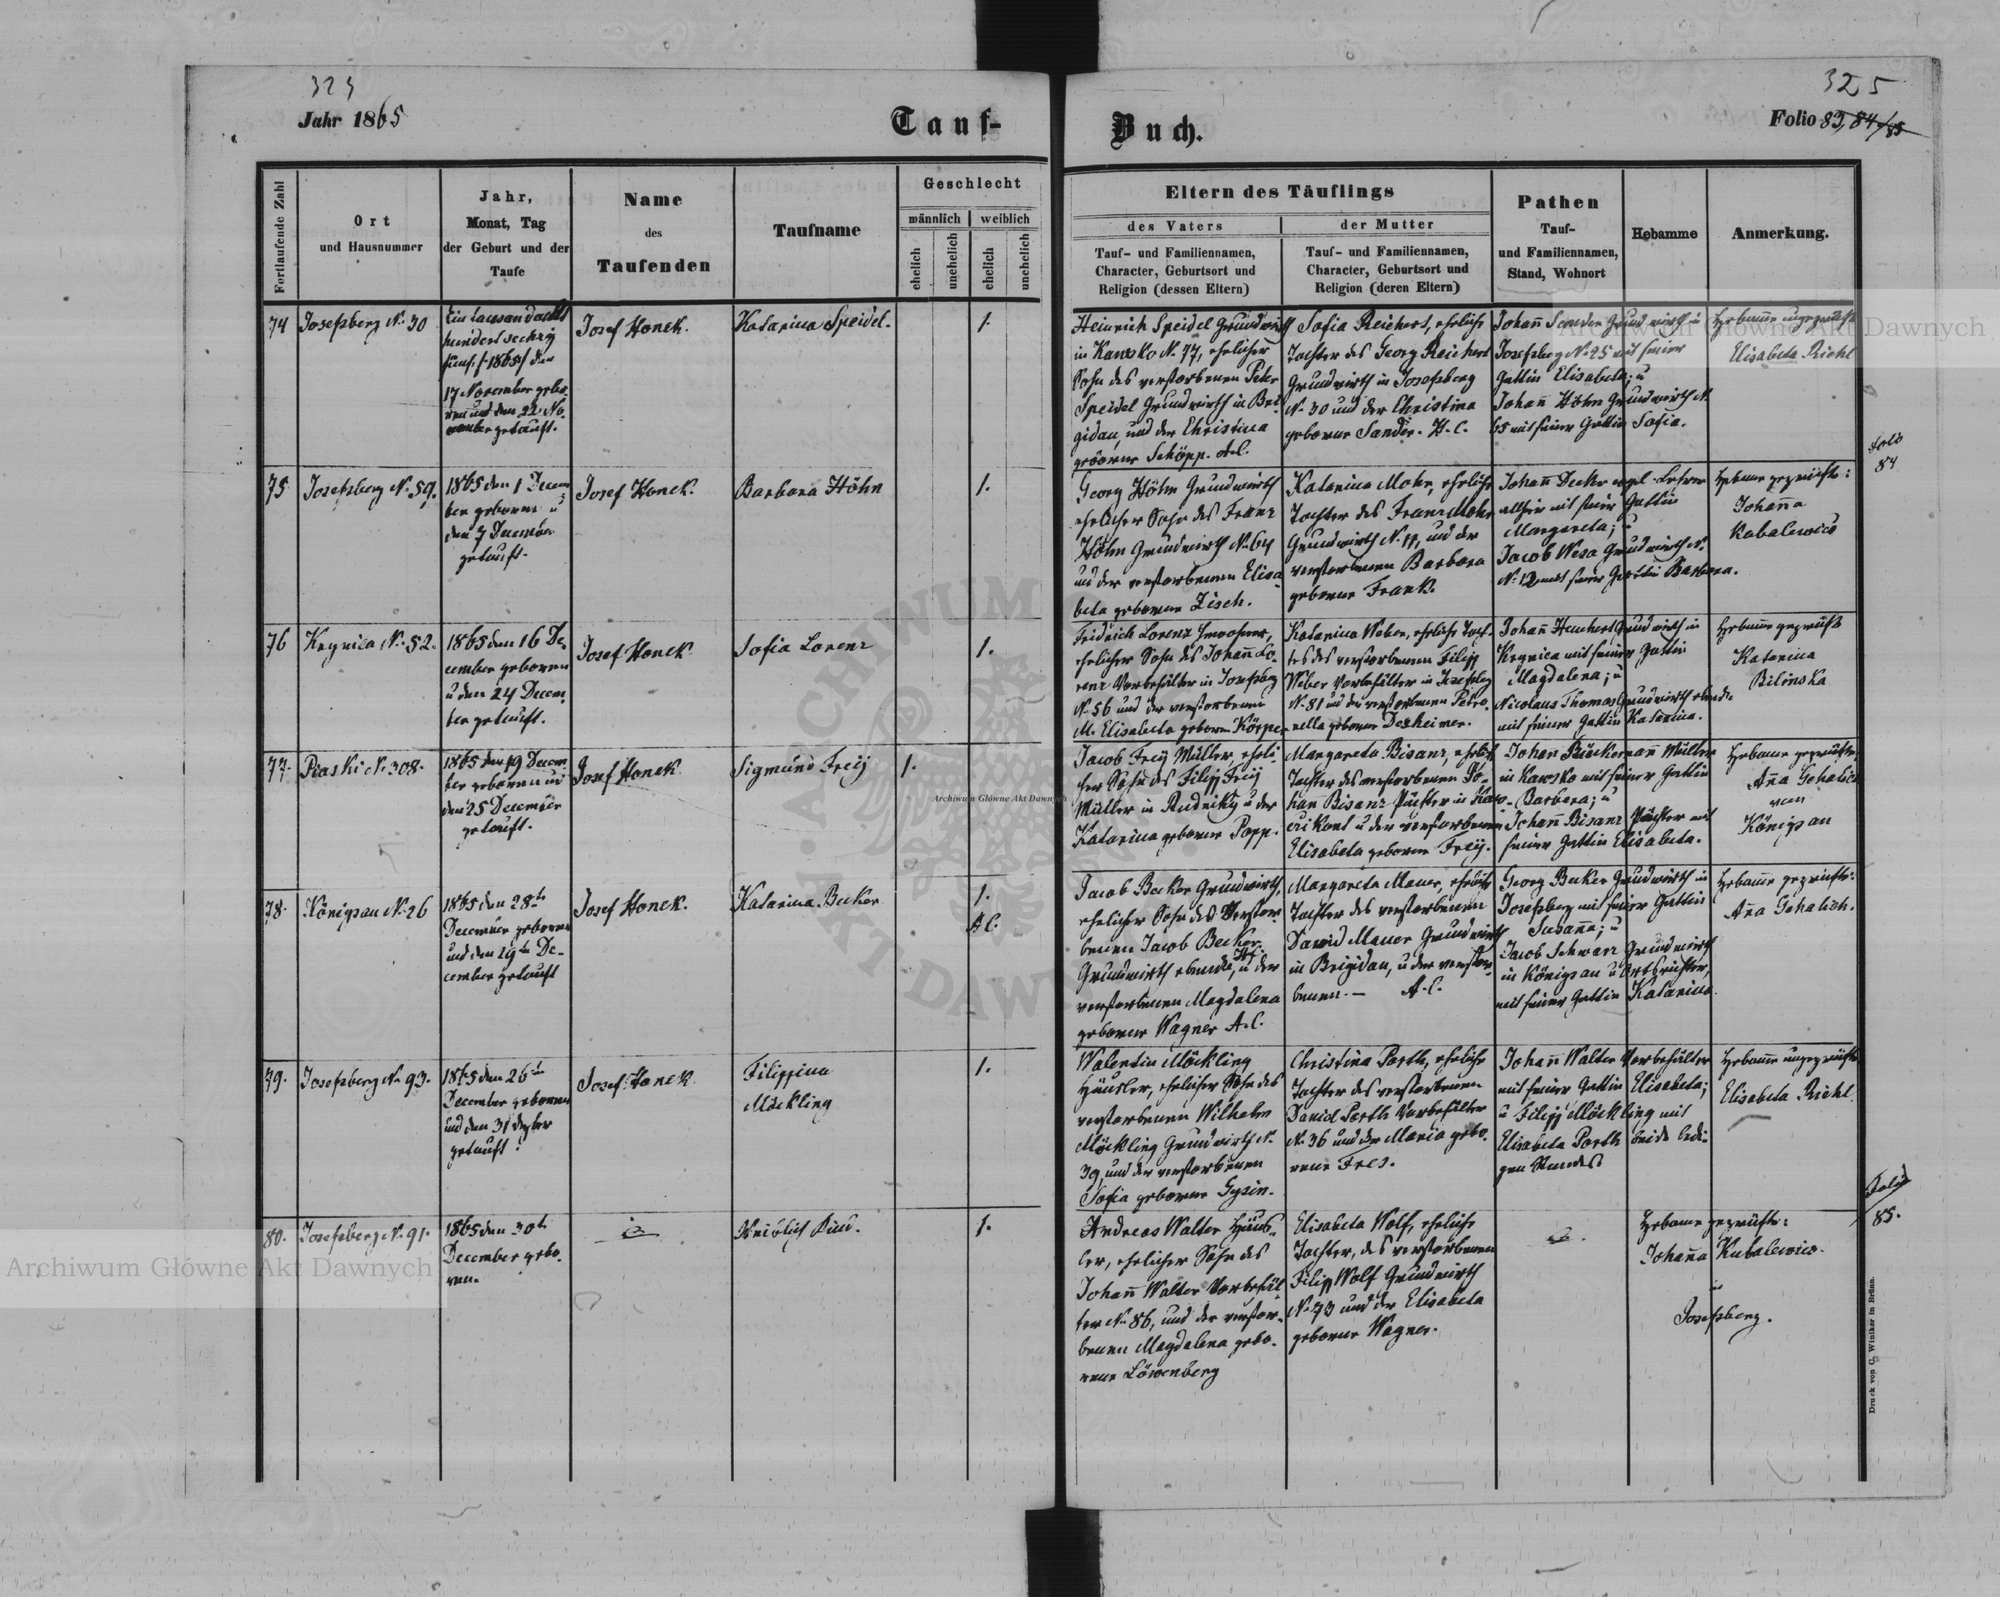 323
325
Jahr 1865
Tauf-
Buch.
Folio 83, 84/85
Fortlaufende Zahl
Ort
und Hausnummer
Jahr,
Monat, Tag
der Geburt und der
Taufe
Name
des
Taufenden
Taufname
Geschlecht
männlich
weiblich
ehelich
unehelich
ehelich
unehelich
Eltern des Täuflings
des Vaters
Tauf- und Familiennamen,
Character, Geburtsort und
Religion (dessen Eltern)
der Mutter
Tauf- und Familiennamen,
Character, Geburtsort und
Religion (deren Eltern)
Pathen
Tauf-
und Familiennamen,
Stand, Wohnort
Hebamme
Anmerkung.
74
Josefsberg N. 30
Ein tausend acht
hundert sechzig
fünf /:1865/ den
17 November gebo-
ren und den 22 No-
vember getauft.
Josef Honek.
Katarina Speidel.
1.
Heinrich Speidel Grundwirth
in Kawsko N. 77, ehelicher
Sohn des verstorbenen Peter
Speidel Grundwirth in Bri
gidau, und der Christina
geborne Schöpp. A.C.
Sofia Reichert, eheliche
Tochter des Georg Reichert
Grundwirth in Josefsberg
N. 30 und der Christina
geborne Sander. H.C.
Johann Sander Grundwirth in
Josefsberg N. 25 mit seiner
Gattin Elisabeta; u
Johann Höhn Grundwirth N.
65 mit seiner Gattin Sofia.
Hebamme ungeprüfte
Elisabeta Riehl
Folio
84
75
Josefsberg N. 59.
1865 den 1 Decem
ber geboren u
den 3 December
getauft.
Josef Honek.
Barbara Höhn
1.
Georg Höhn Grundwirth
ehelicher Sohn des Franz
Höhn Grundwirth N. 64
und der verstorbenen Elisa
beta geborne Zisch.
Katarina Mohr, eheliche
Tochter des Franz Mohr
Grundwirth N. 11, und der
verstorbenen Barbara
geborne Frank.
Johann Decker evgel. Lehrer
allhier mit seiner Gattin
Margareta; u
Jacob Wesa Grundwirth N.
N. 12 mit seiner Gattin Barbara.
Hebame geprüfte:
Johanna
Kubalewics
76
Krynica N. 52.
1865 den 16 De
cember geboren
u den 24 Decem
ber getauft.
Josef Honek
Sofia Lorenz
1.
Fridrich Lorenz Inwohner,
ehelicher Sohn des Johann Lo-
renz Vorbehälter in Josefsberg
N. 56 und der verstorbenen
M. Elisabeta geborne Körpe
Katarina Weber, eheliche Toch-
ter des verstorbenen Filipp
Weber Vorbehälter in Josefsberg
N. 81 und der verstorbenen Petro-
nella geborne Dexheimer.
Johann Heuchert Grundwirth in
Krynica mit seiner Gattin
Magdalena; u
Nicolaus Thomas Grundwirth ebenda
mit seiner Gattin Katarina.
Hebamme geprüfte
Katarina
Bilinska
77.
Piaski N. 308.
1865 den 19 Decem-
ber geboren und
den 25 December
getauft.
Josef Honek
Sigmund Freij
1.
Jacob Freij Müller, eheli-
cher Sohn des Filipp Freij
Müller in Rudniky u der
Katarina geborne Popp.
Margareta Bisanz, eheliche
Tochter des verstorbenen Jo-
hann Bisanz Pächter in
u der verstorbenen
Elisabeta geborne Freij.
Johann Bückermann Müller
in Kawsko mit seiner Gattin
Barbara; u
Johann Bisanz Pächter mit
seiner Gattin Elisabeta.
Hebame geprüfte
Anna Gohalich
von
Königsau
78.
Königsau N. 26
1865 den 28ten
December geboren
und den 29ten De-
cember getauft
Josef Honek.
Katarina Becker
1.
A.C.
Jacob Becker Grundwirth,
ehelicher Sohn des Verstor
benen Jacob Becker
Grundwirth ebenda, u der
verstorbenen Magdalena
geborne Wagner A.C.
Margareta Mauer, eheliche
Tochter des verstorbenen
David Mauer Grundwirth
in Brigidau, u der verstor
benen. — A.C.
Georg Becker Grundwirth in
Josefsberg mit seiner Gattin
Susanna; u
Jacob Schwarz Grundwirth
in Königsau u Ortsrichter,
mit seiner Gattin Katarina.
Hebamme geprüfte:
Anna Gohalich.
79.
Josefsberg N. 93.
1865 den 26ten
December geboren
und den 31 Dezber
getauft.
Josef Honek
Filippina
Möckling
1.
Walentin Möckling
Häusler, ehelicher Sohn des
verstorbenen Wilhelm
Möckling Grundwirth N.
39, und der verstorbenen
Sofia geborne Gysin.
Christina Porth, eheliche
Tochter des verstorbenen
Daniel Porth Vorbehälter
N. 36 und der Maria gebo-
rene Fres.
Johann Walter Vorbehälter
mit seiner Gattin Elisabeta;
u Filipp Möckling mit
Elisabeta Porth beide ledi-
gen Standes
Hebamme ungeprüfte
Elisabeta Riehl
Folio
85.
80.
Josefsberg N. 91.
1865 den 30t
December gebo-
ren.
Weiblich Kind.
1.
Andreas Walter Häus-
ler, ehelicher Sohn des
Johann Walter Vorbehäl-
ter N. 86, und der verstor-
benen Magdalena gebo-
rene Löwenberg
Elisabeta Wolf, eheliche
Tochter, des verstorbenen
Filipp Wolf Grundwirth
N. 73 und der Elisabeta
geborne Wagner.
Hebame geprüfte:
Johanna Kubalewics.
in
Josefsberg.
Druck von C. Winiker in Brünn.
Archiwum Główne Akt Dawnych
Archiwum Główne Akt Dawnych
Archiwum Główne Akt Dawnych
ARCHIWUM
AKT DAWN